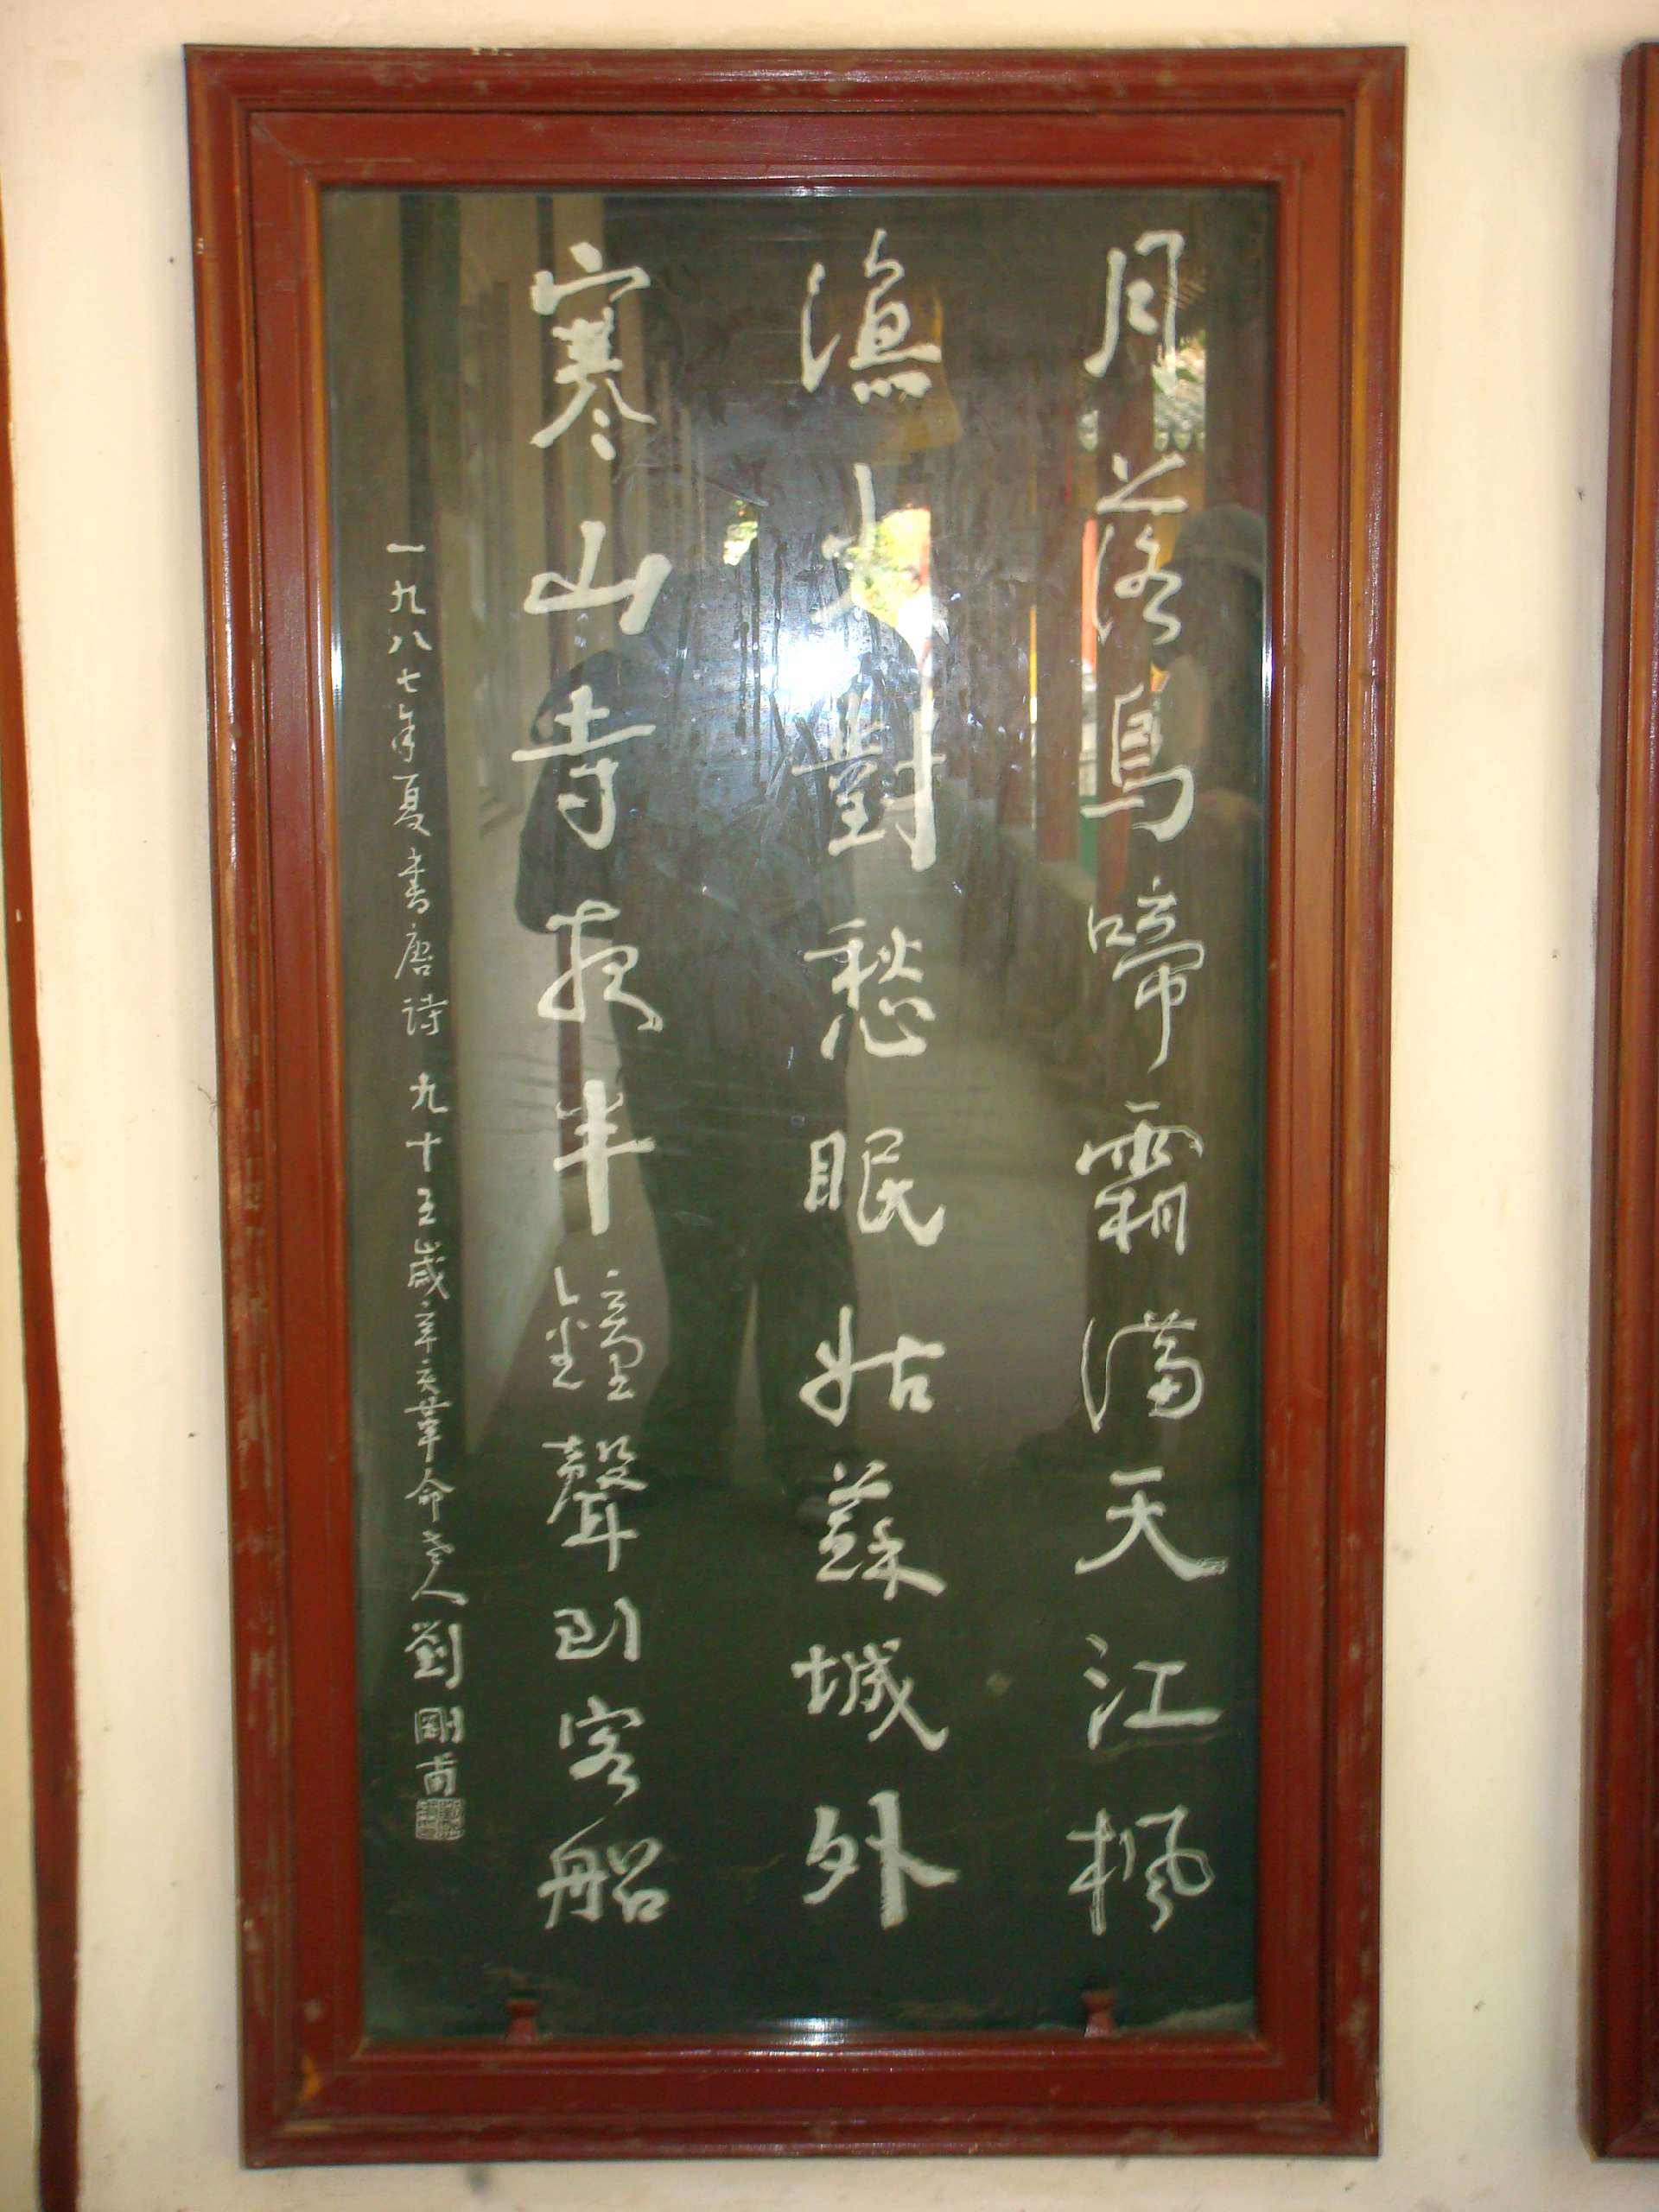 月落烏啼霜滿天江楓
漁火對愁眠姑蘇城外
寒山寺夜半鐘聲到客船
一九八七年夏書唐诗 九十五歲辛亥革命老人劉剛甫